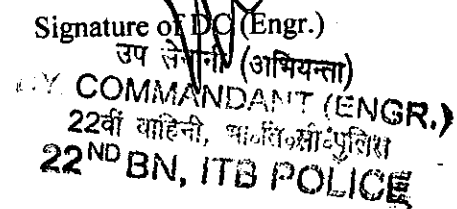 Signature of DC (Engr.)
उप सेनानी (अभियन्ता)
COMMANDANT (ENGR.)
22वीं वाहिनी, भा॰ति॰सी॰पुलिस
22ND BN, ITB POLICE